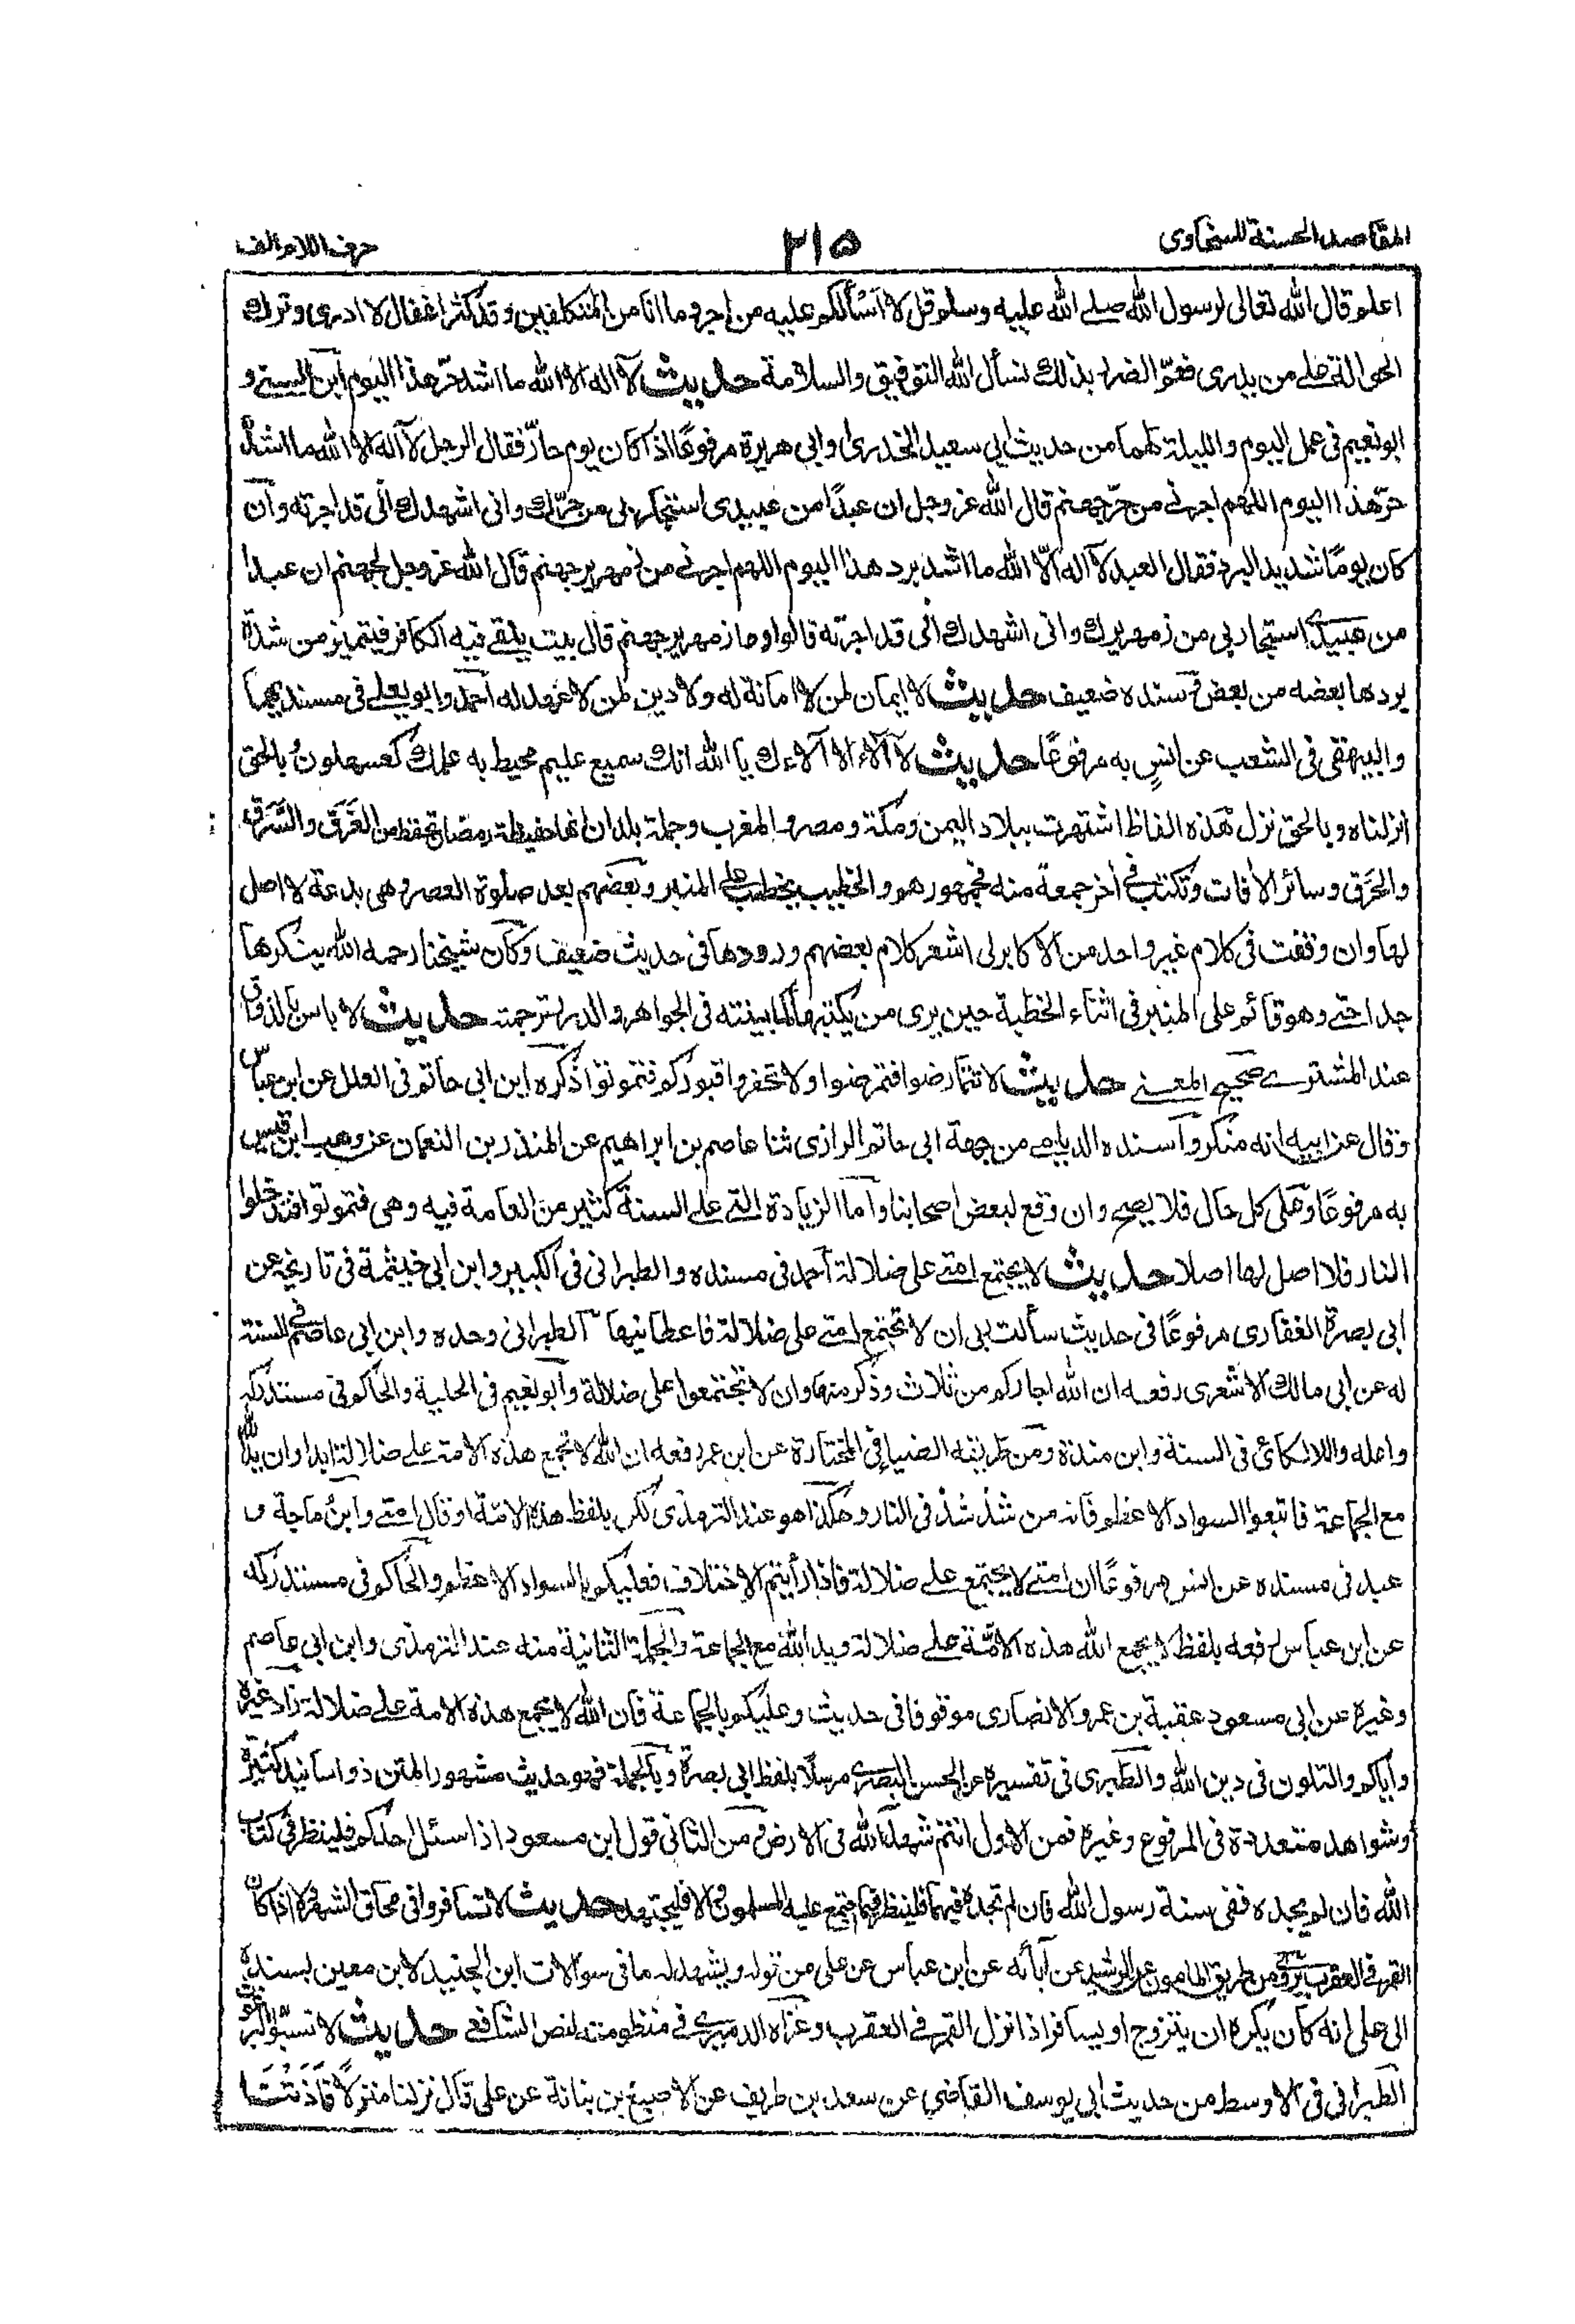 المقاصد الحسنة للسخاوى
٢١٥
حرف اللام الف
اعلم وقال الله تعالى لرسول الله صلے الله عليه وسلم قل لا اسألكم عليه من اجر وما انا من المتكلفين وقد كثر اغفال لا ادرى وترك
الحى التى على من يدرى فعمّ الضرر بذلك نسأل الله التوفيق والسلامة حديث لا اله الا الله ما اشد حرّ هذا اليوم ابن السنے و
ابو نعيم فى عمل اليوم والليلة لهما من حديث ابى سعيد الخدرى او ابى هريرة مرفوعًا اذا كان يوم حارّ فقال الرجل لا اله الا الله ما اشدّ
حرّ هذا اليوم اللهم اجرنے من حرّ جهنم قال الله عز وجل ان عبدًا من عبيدى استجار بى من حرّك وانى اشهدك انى قد اجرته وان
كان يومًا شديد البرد فقال العبد لا اله الّا الله ما اشد برد هذا اليوم اللهم اجرنے من زمهرير جهنم قال الله عز وجل لجهنم ان عبدا
من عبيدے استجار بى من زمهريرك وانى اشهدك انى قد اجرته قالوا وما زمهرير جهنم قال بيت يلقے فيه الكافر فيتميز من شدة
بردها بعضه من بعض وسنده ضعيف حديث لا ايمان لمن لا امانة له ولا دين لمن لا عهد له احمد وابو يعلے فى مسنديهما
والبيهقى فى الشعب عن انسٍ به مرفوعًا حديث لا آلاء الا آلاءك يا الله انك سميع عليم محيط به علمك كعسهلون وبالحق
انزلناه وبالحق نزل هذه الفاظ اشتهرت ببلاد اليمن ومكة ومصر والمغرب وجملة بلدان انها حفيظة رمضان تحفظ من الغَرَق والسَّرَق
والحَرَق وسائر الآفات وتكتب فے آخر جمعة منه فجمهورهم والخطيب يخطب على المنبر وبعضهم بعد صلوة العصر وهى بدعة لا اصل
لها وان وقعت فى كلام غير واحد من الاكابر بل اشعر كلام بعضهم ورودها فى حديث ضعيف وكان شيخنا رحمه الله ينكرها
جدا حتے وهو قائم على المنبر فى اثناء الخطبة حين يرى من يكتبها كما بينته فى الجواهر والدرر ترجمته حديث لا باس بالذواق
عند المشترے صحيح المعنے حديث لا تتمارضوا فتمرضوا ولا تحفروا قبوركم فتموتوا ذكره ابن ابى حاتم فى العلل عن ابن عباس
وقال عن ابيه انه منكر واسنده الديلمے من جهة ابى حاتم الرازى ثنا عاصم بن ابراهيم عن المنذر بن النعمان عن وهب ابن قيس
به مرفوعًا وعلى كل حال فلا يصح وان وقع لبعض اصحابنا واما الزيادة التے علے السنة كثير من العامة فيه وهى فتموتوا فتدخلوا
النار فلا اصل لها اصلا حديث لا يجتمع امتے على ضلالة احمد فى مسنده والطبرانى فى الكبير وابن ابى خيثمة فى تاريخه عن
ابى بصرة الغفارى مرفوعًا فى حديث سألت ربى ان لا تجتمع امتے على ضلالة فاعطانيها الطبرانى وحده وابن ابى عاصم فے السنة
له عن ابى مالك الاشعرى رفعه ان الله اجاركم من ثلاث وذكر منها وان لا تجتمعوا على ضلالة وابو نعيم فى الحلية والحاكم فى مستدركه
واعله واللالكائ فى السنة وابن مندة ومن طريقه الضياء فى المختارة عن ابن عمر رفعه ان الله لا يجمع هذه الامة علے ضلالة ابدا وان يد الله
مع الجماعة فاتبعوا السواد الاعظم فانه من شذ شذ فى النار وهكذا هو عند الترمذى لكن بلفظ هذه الامة او قال امتے وابن ماجة و
عبد فى مسنده عن انس مرفوعًا ان امتے لا يجتمع علے ضلالة فاذا رأيتم الاختلاف فعليكم بالسواد الاعظم والحاكم فى مستدركه
عن ابن عباس رفعه بلفظ لا يجمع الله هذه الامّة علے ضلالة ويد الله مع الجماعة والجملة الثانية منه عند الترمذى وابن ابى عاصم
وغيره عن ابى مسعود عقبة بن عمرو الانصارى موقوفا فى حديث وعليكم بالجماعة فان الله لا يجمع هذه الامة علے ضلالة زاد غيره
واياكم والتلون فى دين الله والطبرى فى تفسيره عن الحسن البصرے مرسلًا بلفظ ابى بصرة وبالجملة فهو حديث مشهور المتن ذو اسانيد كثيرة
وشواهد متعددة فى المرفوع وغيره فمن الاول انتم شهداء الله فى الارض ومن الثانى قول ابن مسعود اذا سئل احدكم فلينظر فى كتاب
الله فان لم يجده ففى سنة رسول الله فان لم يجده فيها فلينظر فيما اجتمع عليه المسلمون والا فليجتهد حديث لا تسافروا فى محاق الشهر ولا اذا كان
القمر فى العقرب يروى من طريق المامون عن الرشيد عن آبائه عن ابن عباس عن على من قوله ويشهد له ما فى سوالات ابن الجنيد لابن معين بسنده
الى على انه كان يكره ان يتزوج او يسافر اذا نزل القمر فے العقرب وعزاه الدميرے فے منظومته لنص الشافعے حديث لا تسبّوا البرغوث
الطبرانى فى الاوسط من حديث ابى يوسف القاضى عن سعد بن طريف عن الاصبغ بن نباتة عن على قال نزلنا منزلًا فآذَتْنَا